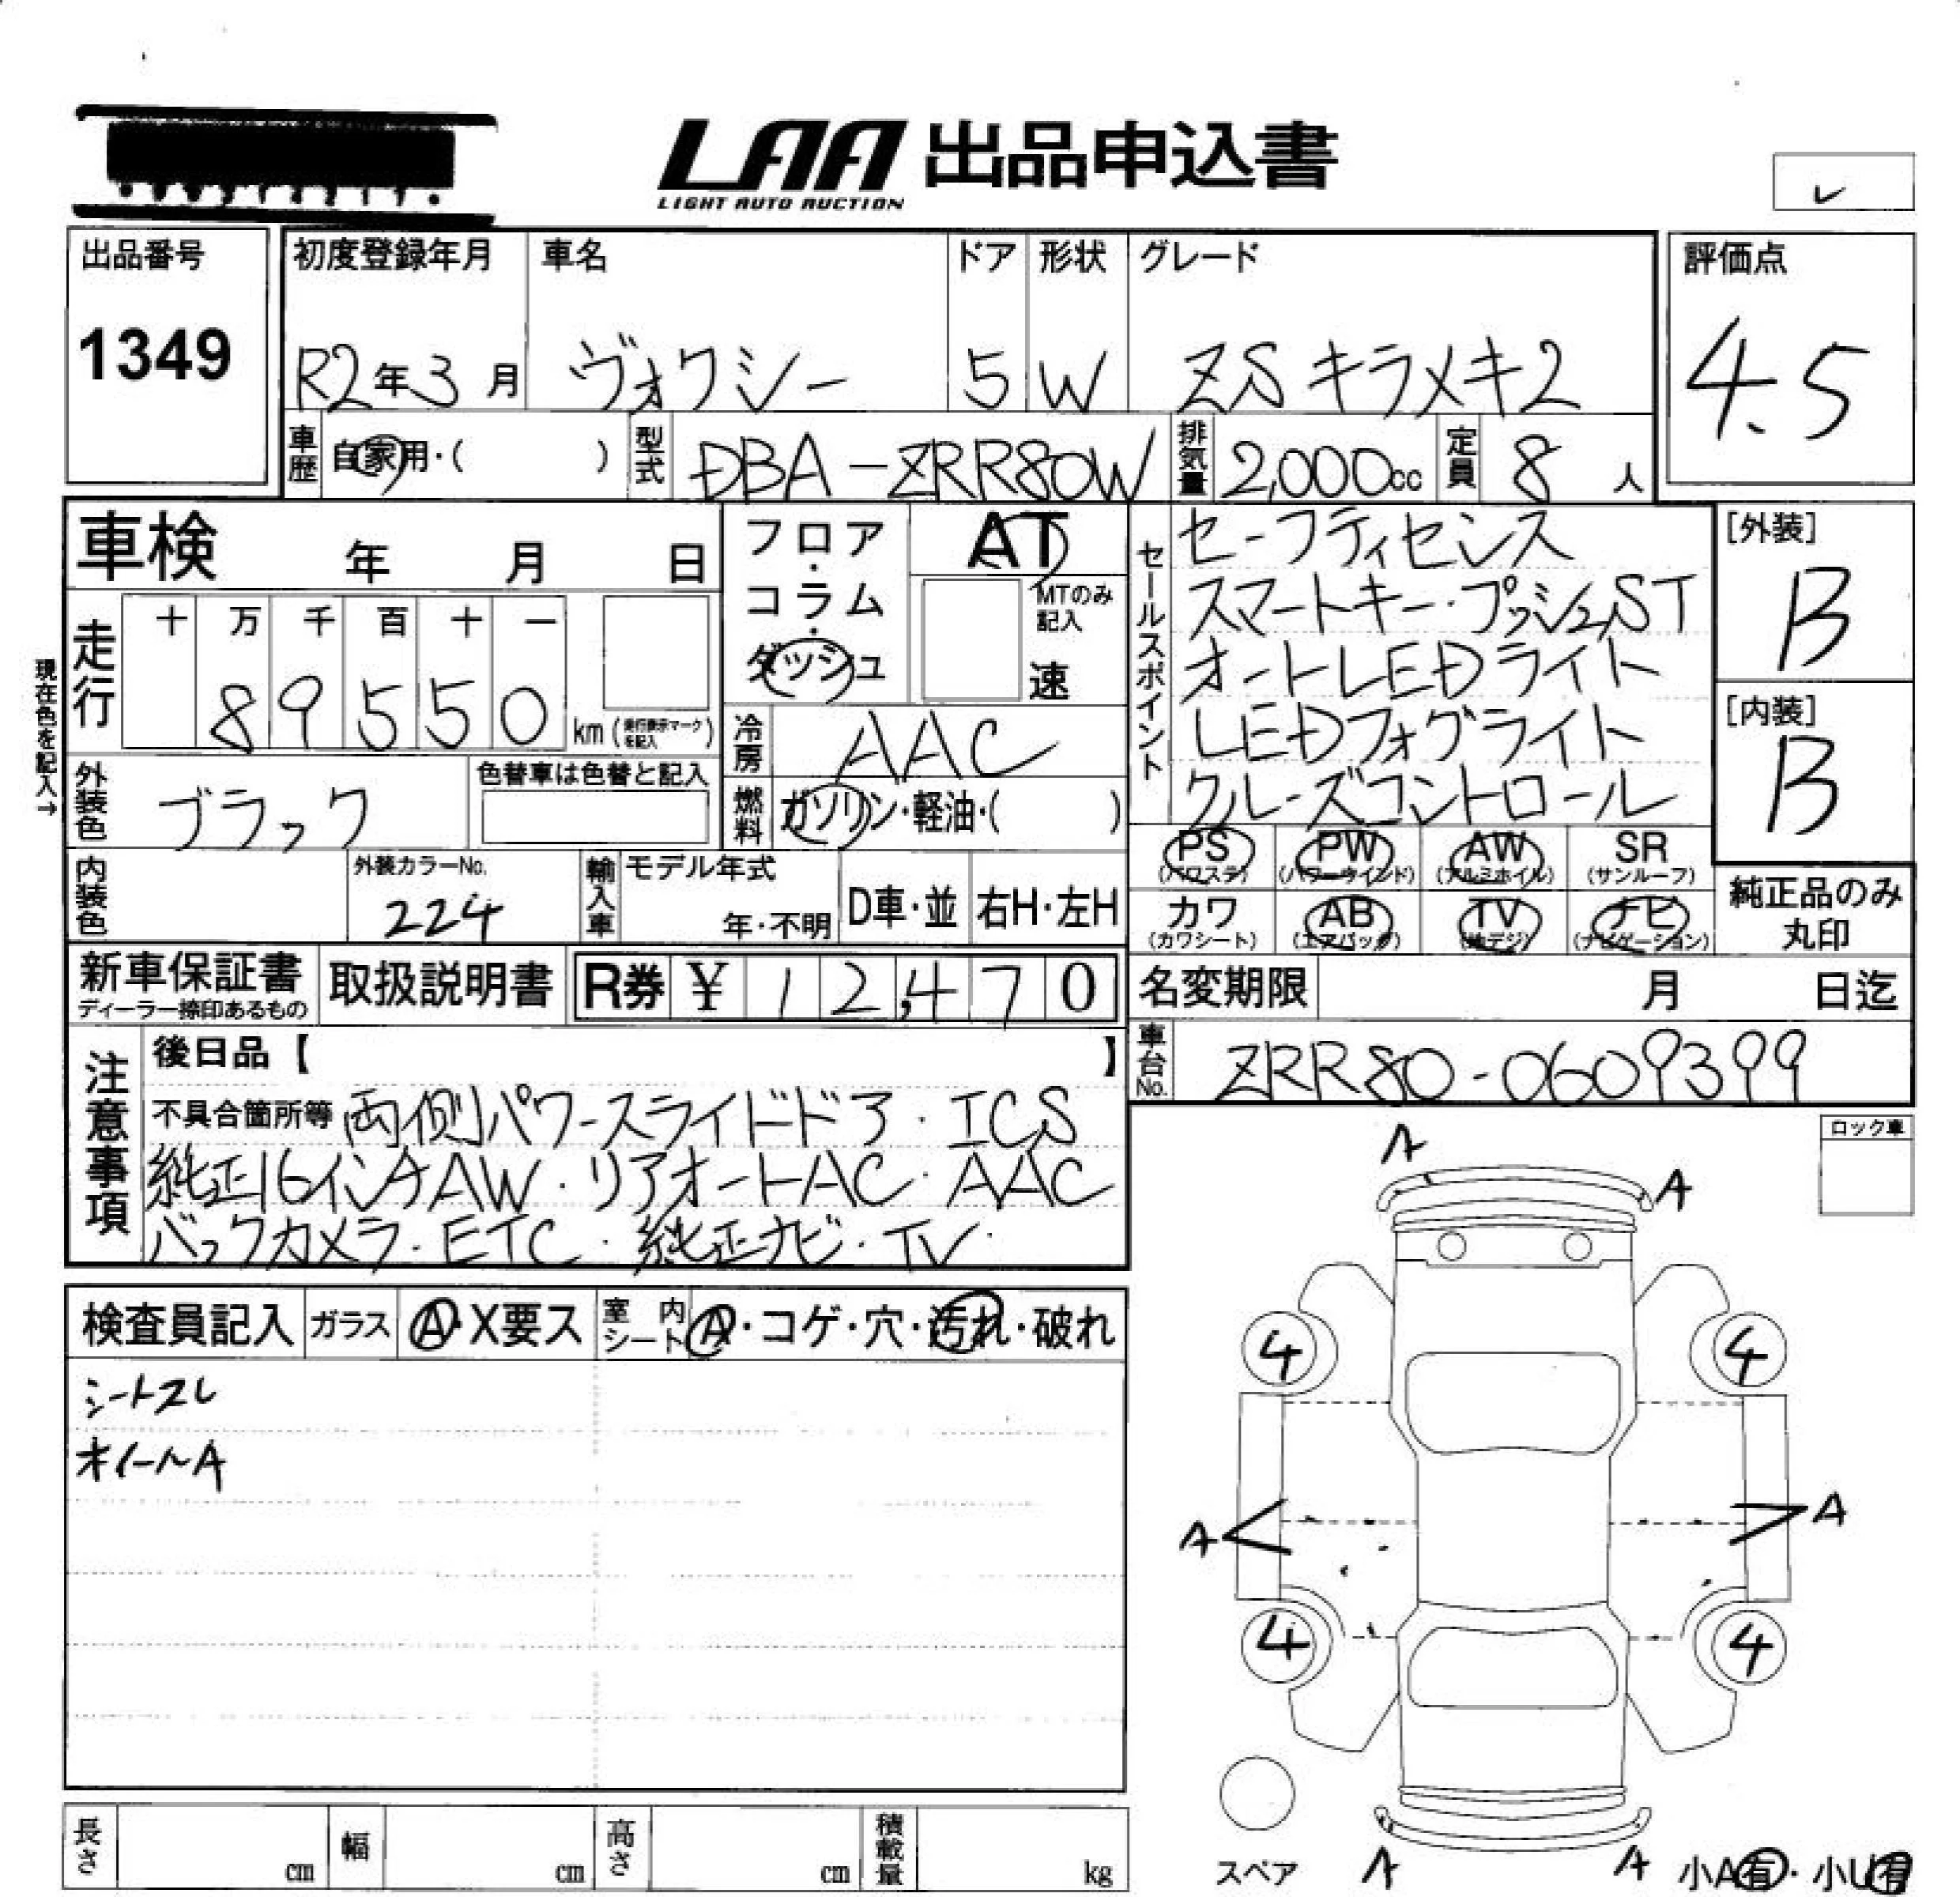 LAA 出品申込書
LIGHT AUTO AUCTION
出品番号
1349
初度登録年月
R2年3月
車名
ヴォクシー
ドア
5
形状
W
グレード
ZSキラメキ2
評価点
4.5
車歴 自家用・( )
型式 DBA-ZRR80W
排気量 2,000cc
定員 8人
車検 年 月 日
現在色を記入→
走行
十 万 千 百 十 一
89550 km (走行表示マークを記入)
フロア・コラム・ダッシュ
AT
MTのみ記入
速
冷房 AAC
燃料 ガソリン・軽油・( )
セールスポイント
セーフティセンス
スマートキー・プッシュST
オートLEDライト
LEDフォグライト
クルーズコントロール
[外装]
B
[内装]
B
外装色 ブラック
色替車は色替と記入
内装色
外装カラーNo.
224
輸入車
モデル年式
年・不明
D車・並
右H・左H
PS (パワステ)
PW (パワーウインド)
AW (アルミホイル)
SR (サンルーフ)
カワ (カワシート)
AB (エアバッグ)
TV (地デジ)
ナビ (ナビゲーション)
純正品のみ
丸印
新車保証書
ディーラー捺印あるもの
取扱説明書
R券 ¥ 12,470
名変期限 月 日迄
車台No. ZRR80-0609399
注意事項
後日品【 】
不具合箇所等 両側パワースライドドア・ICS
純正16インチAW・リアオートAC・AAC
バックカメラ・ETC・純正ナビ・TV・
ロック車
検査員記入
ガラス A・X要ス
室内シート A・コゲ・穴・汚れ・破れ
シートスレ
ホイールA
A
A
4
4
A
A
4
4
スペア
A
A
小A有・小U有
長さ cm
幅 cm
高さ cm
積載量 kg